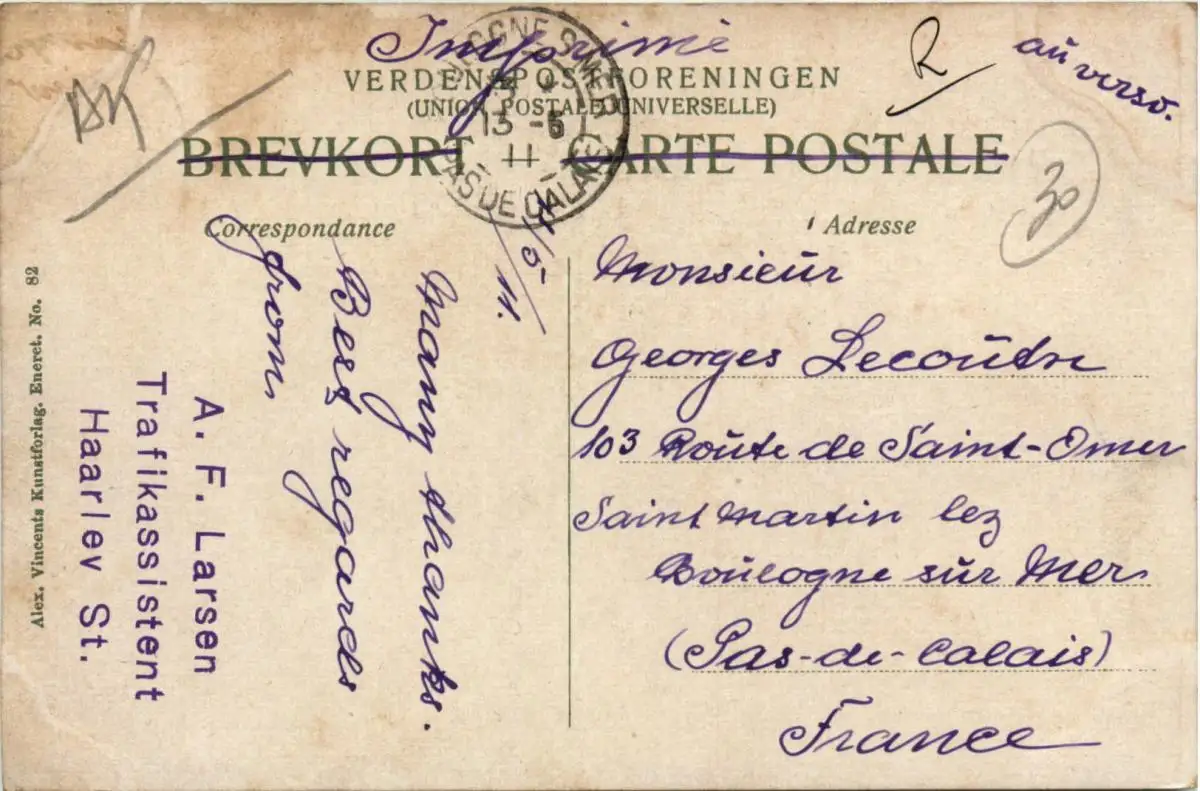 Imprimé
au verso.
R
AK
30
VERDENSPOSTFORENINGEN
(UNION POSTALE UNIVERSELLE)
BREVKORT CARTE POSTALE
BOULOGNE S MER
13 -5
11
PAS DE CALAIS
Correspondance
11/5
11.
Many thanks.
Best regards
from
A. F. Larsen
Trafikassistent
Haarlev St.
Alex. Vincents Kunstforlag. Eneret. No. 82
Adresse
Monsieur
Georges Lecoutre
103 Route de Saint-Omer
Saint Martin lez
Boulogne sur Mer
(Pas-de-Calais)
France